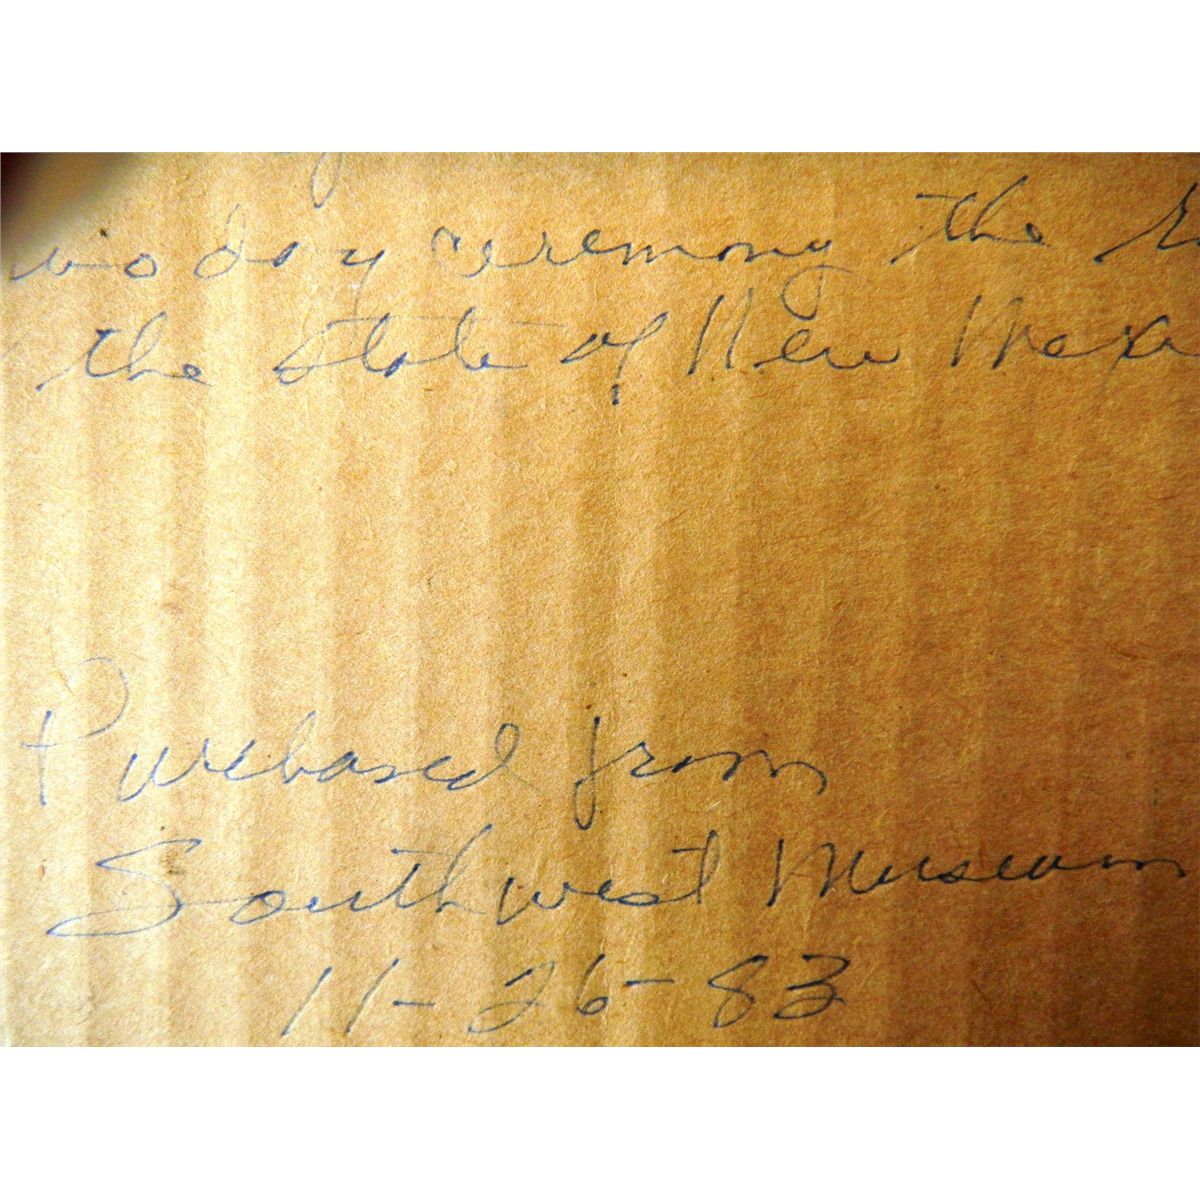 day ceremony the
the State of New Mex
Purchased from
Southwest Museum
11-26-83